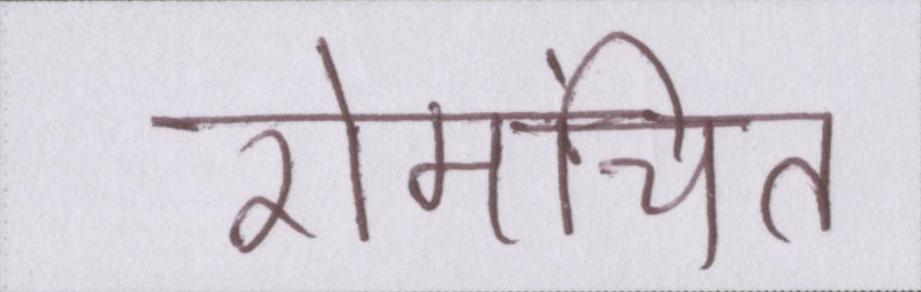 रोमंचित